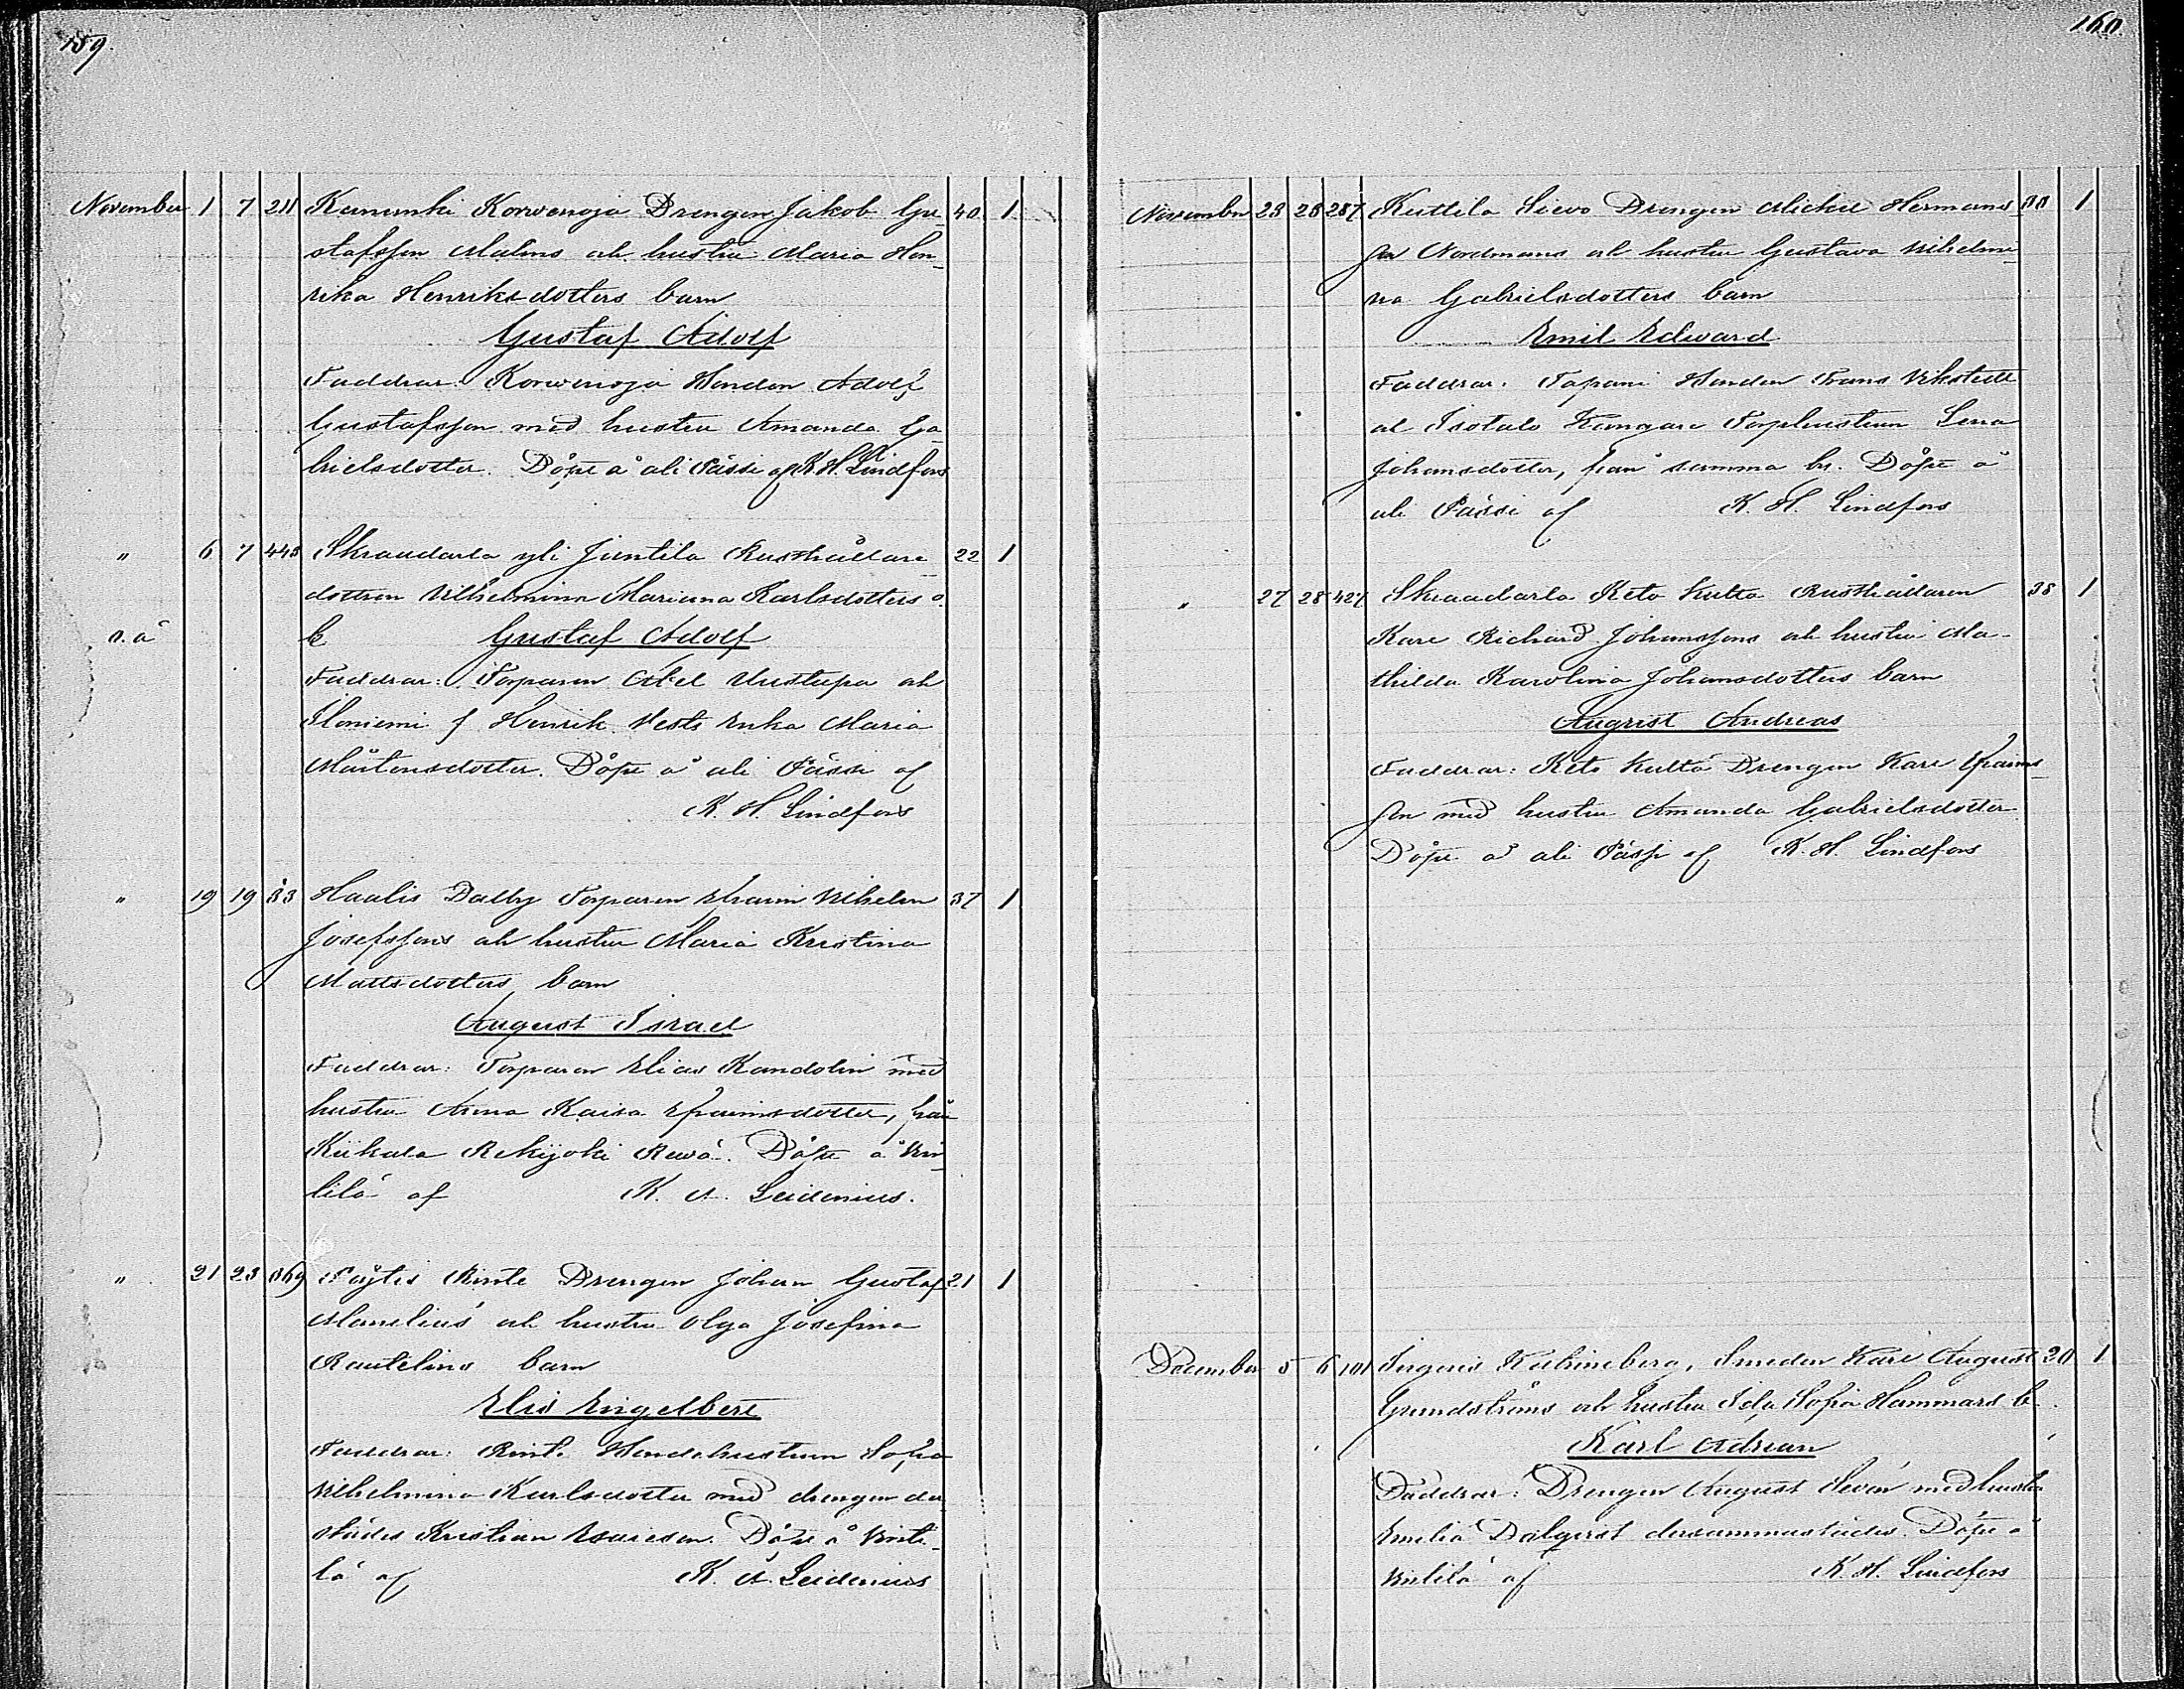 159.
November 1 7 211 Kanunki Korvenoja Drengen Jakob Gu- 40 1
stafsson Malms och hustru Maria Hen-
rika Henriksdotters barn
Gustaf Adolf
Faddrar: Korvenoja Bonden Adolf
Gustafsson med hustru Amanda Ga-
brielsdotter. Döpt å ali Pässi af K. H. Lindfors
" 6 7 443 Skraadarla yli Juntila Rusthållare- 22 1
dottren Vilhelmina Mariana Karlsdotters o.
o.ä b. Gustaf Adolf
Faddrar: Torparen Abel Uustupa och
Iloniemi Henrik Vests enka Maria
Mårtensdotter. Döpt å ali Pässi af
K. H. Lindfors
" 19 19 33 Haalis Dalby Torparen Efraim Vilhelm 37 1
Josefssons och hustru Maria Kristina
Mattsdotters barn
August Israel
Faddrar: Torparen Elias Kandolin med
hustru Anna Kaisa Efraimsdotter, från
Kiikala Rekijoki. Döpt å Vin-
tilä af K. A. Leidenius.
" 21 23 369 Pöytis Rinte Drengen Johan Gustaf 21 1
Manelius och hustru Olga Josefina
Rautelins barn
Elis Engelbert
Faddrar: Rinte Bondehustrun Sofia
Vilhelmina Karlsdotter med drengen der-
städes Kristian Esaiesson. Döpt å Vinti-
lä af K. A. Leidenius
160.
November 23 28 287 Kuttila Sievo Drengen Michel Hermans- 30 1
son Nordmans och hustru Gustava Vilhelmi-
na Gabrielsdotters barn
Emil Edvard
Faddrar: Tapani Bonden Frans Vikstedt
och Isotalo Kangare Torphustrun Lena
Johansdotter, från samma by. Döpt å
ali Pässi af K. H. Lindfors
" 27 28 427 Skraadarla Keto Kulta Rusthållaren 38 1
Karl Richard Johanssons och hustru Ma-
thilda Karolina Johansdotters barn
August Andreas
Faddrar: Keto Kulta Drengen Karl Efraims-
son med hustru Amanda Gabrielsdotter
Döpt å ali Pässi af K. H. Lindfors
December 5 6 101 Ingeris, Smeden Karl August 20 1
Grundströms och hustru Ida Sofia Hammars b.
Karl Adrian
Faddrar: Drengen August Sevón med hustru
Emelia Dalqvist dersammastädes. Döpt å
Vintilä af K. H. Lindfors